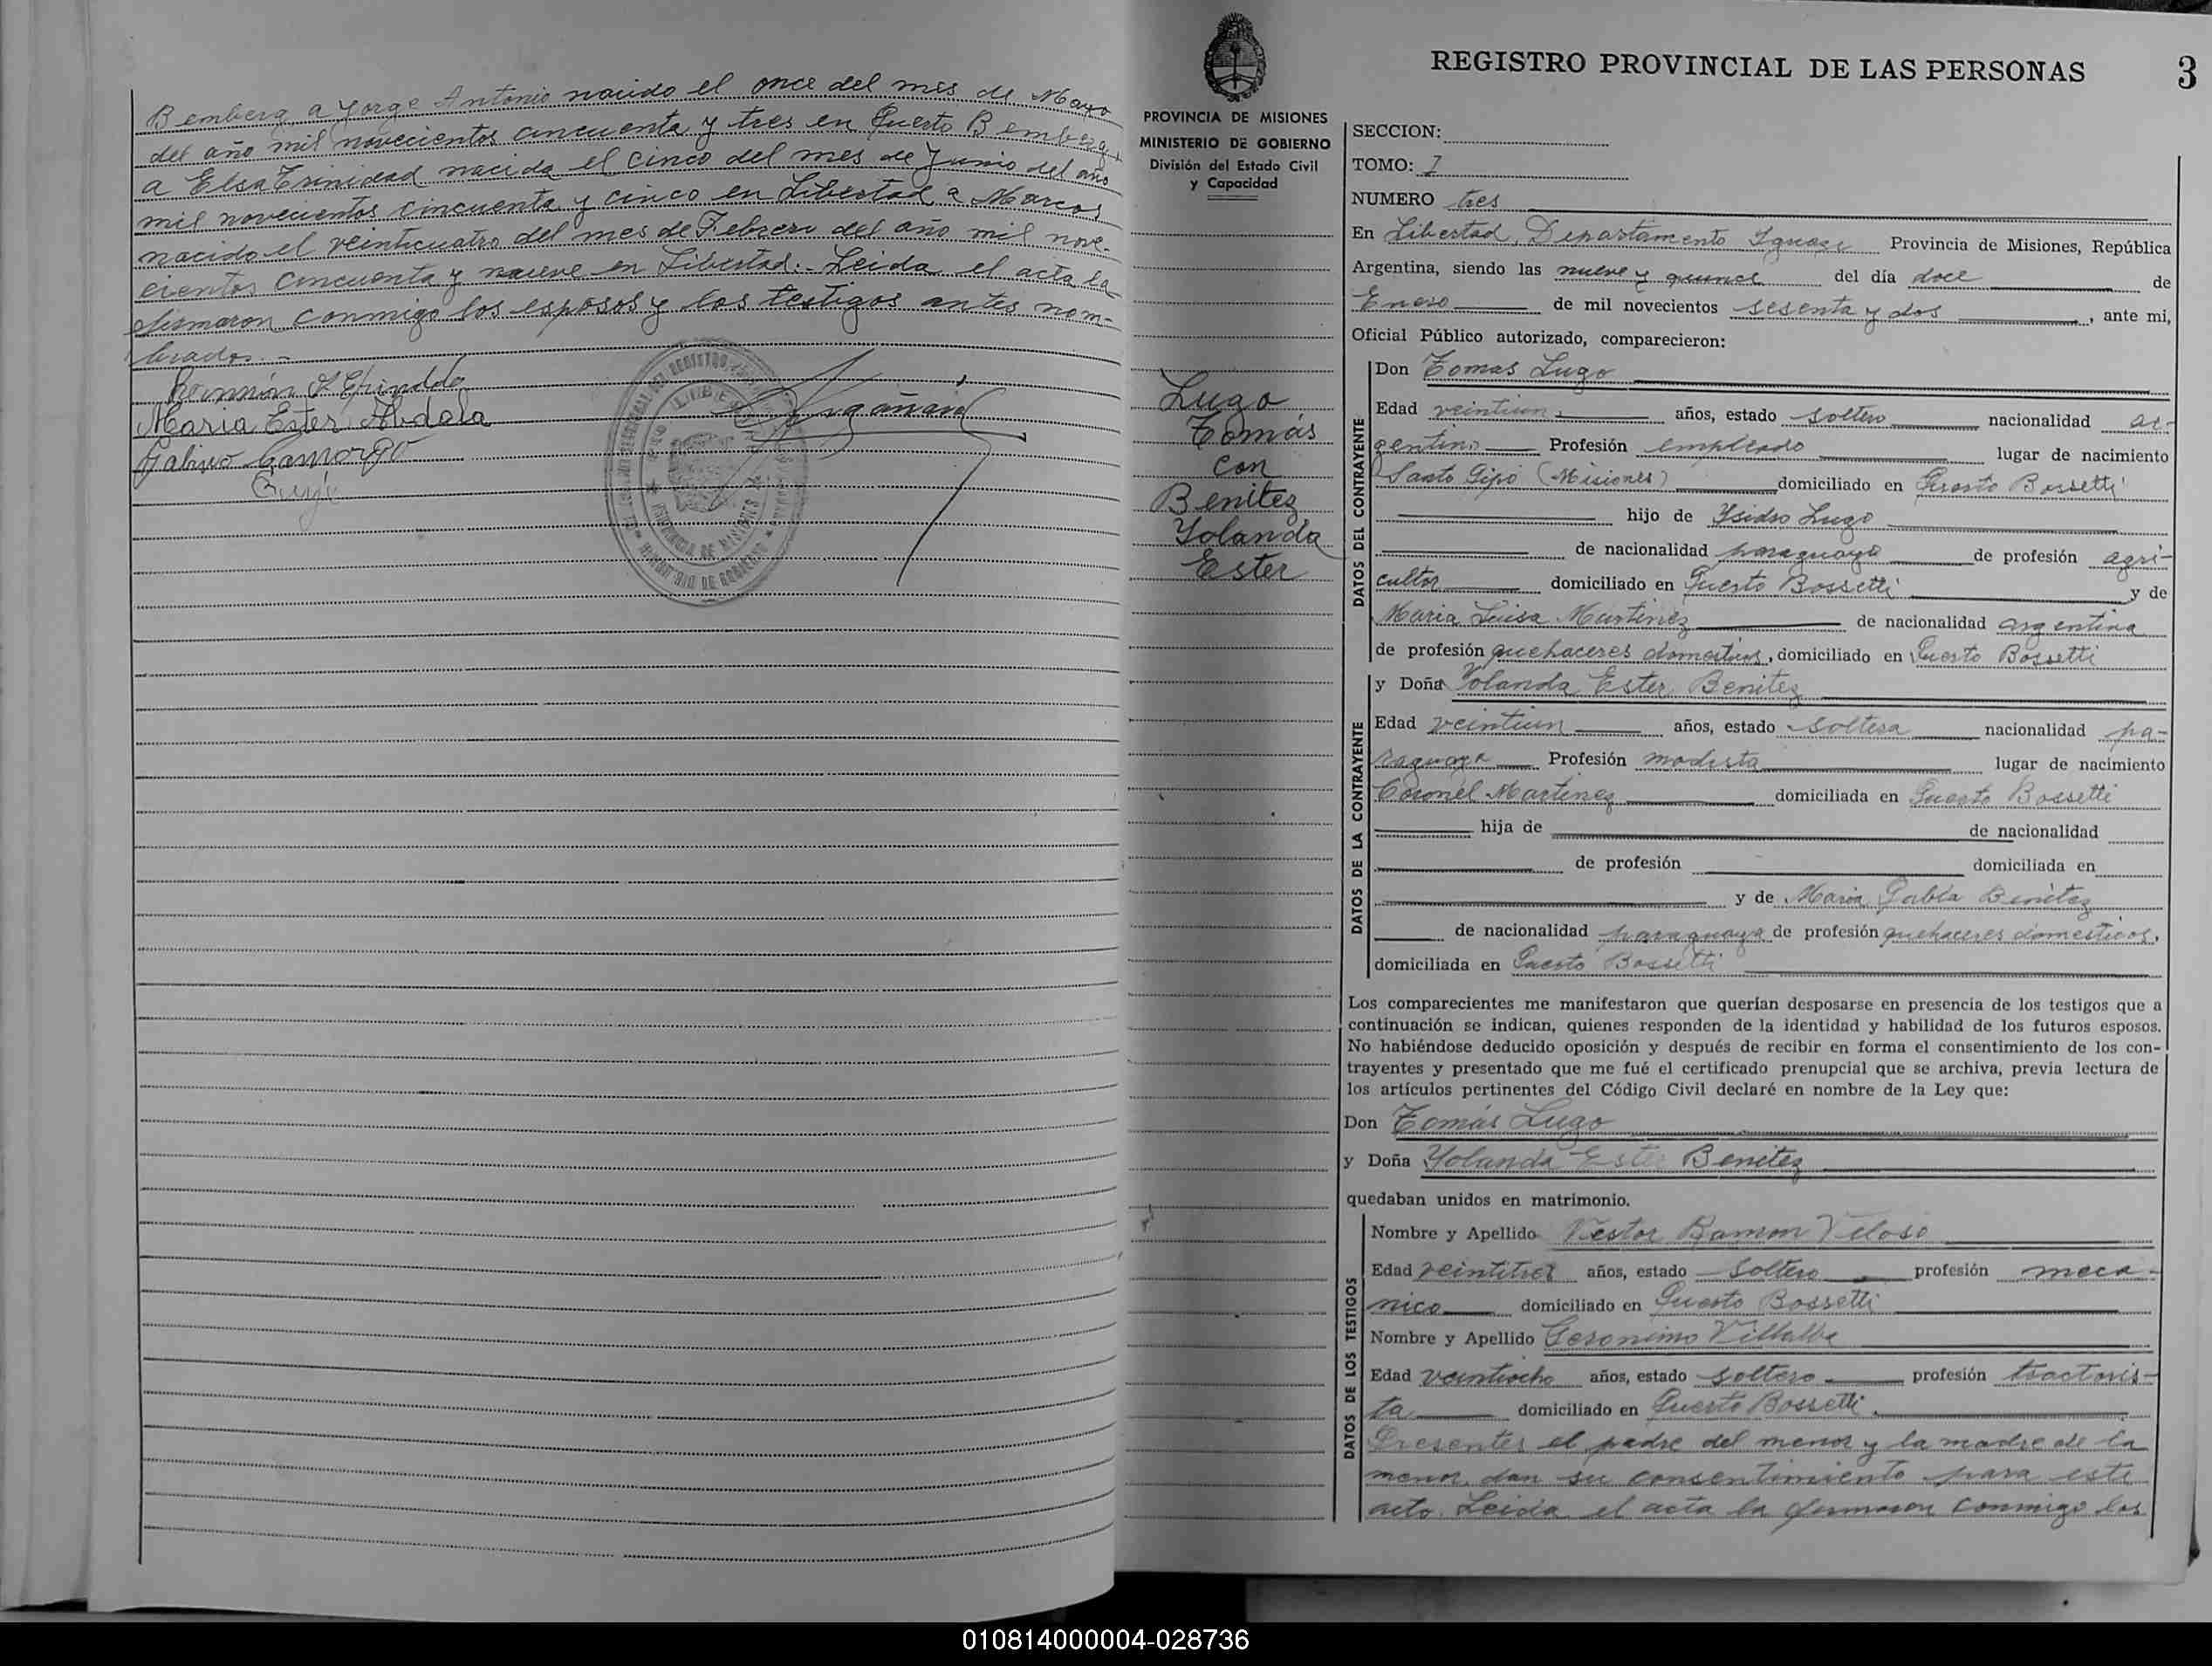 Bemberg a Jorge Antonio nacido el once del mes de Mayo
del año mil novecientos cincuenta y tres en Puerto Bemberg,
a Elsa Trinidad nacida el cinco del mes de Junio del año
mil novecientos cincuenta y cinco en Libertad a Marcos
nacido el veinticuatro del mes de Febrero del año mil nove-
cientos cincuenta y nueve en Libertad.- Leida el acta la
firmaron conmigo los esposos y los testigos antes nom-
brados.-
Maria Ester Abdala
PROVINCIA DE MISIONES
MINISTERIO DE GOBIERNO
División del Estado Civil
y Capacidad
Lugo
Tomás
con
Benitez
Yolanda
Ester
REGISTRO PROVINCIAL DE LAS PERSONAS 3
SECCION:
TOMO: I
NUMERO tres
En Libertad, Departamento Iguazú Provincia de Misiones, República
Argentina, siendo las nueve y quince del día doce de
Enero de mil novecientos sesenta y dos, ante mi,
Oficial Público autorizado, comparecieron:
DATOS DEL CONTRAYENTE
Don Tomas Lugo
Edad veintiun años, estado soltero nacionalidad ar-
gentino Profesión empleado lugar de nacimiento
Santo Pipó (Misiones) domiciliado en Puerto Bossetti
hijo de Ysidro Lugo
de nacionalidad paraguaya de profesión agri-
cultor domiciliado en Puerto Bossetti y de
Maria Luisa Martinez de nacionalidad argentina
de profesión quehaceres domesticos, domiciliado en Puerto Bossetti
DATOS DE LA CONTRAYENTE
y Doña Yolanda Ester Benitez
Edad veintiun años, estado soltera nacionalidad pa-
raguaya Profesión modista lugar de nacimiento
Coronel Martinez domiciliada en Puerto Bossetti
hija de de nacionalidad
de profesión domiciliada en
y de Maria Pabla Benitez
de nacionalidad paraguaya de profesión quehaceres domesticos,
domiciliada en Puerto Bossetti
Los comparecientes me manifestaron que querían desposarse en presencia de los testigos que a
continuación se indican, quienes responden de la identidad y habilidad de los futuros esposos.
No habiéndose deducido oposición y después de recibir en forma el consentimiento de los con-
trayentes y presentado que me fué el certificado prenupcial que se archiva, previa lectura de
los artículos pertinentes del Código Civil declaré en nombre de la Ley que:
Don Tomás Lugo
y Doña Yolanda Ester Benitez
quedaban unidos en matrimonio.
DATOS DE LOS TESTIGOS
Nombre y Apellido Nestor Ramon Veloso
Edad veintitres años, estado soltero profesión meca-
nico domiciliado en Puerto Bossetti
Nombre y Apellido Geronimo Villalba
Edad veintiocho años, estado soltero profesión tractoris-
ta domiciliado en Puerto Bossetti.
Presentes el padre del menor y la madre de la
menor, dan su consentimiento para este
acto. Leida el acta la firmaron conmigo los
010814000004-028736